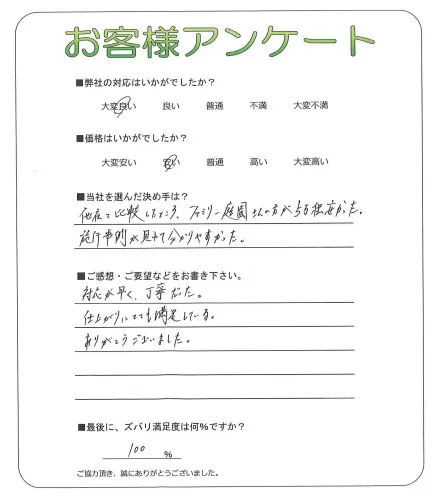 お客様アンケート
■弊社の対応はいかがでしたか？
大変良い 良い 普通 不満 大変不満
■価格はいかがでしたか？
大変安い 安い 普通 高い 大変高い
■当社を選んだ決め手は？
他店と比較したところ、ファミリー庭園さんの方が5万程安かった。
施行事例が見れて分かりやすかった。
■ご感想・ご要望などをお書き下さい。
対応が早く、丁寧だった。
仕上がりにとても満足している。
ありがとうございました。
■最後に、ズバリ満足度は何％ですか？
100 ％
ご協力頂き、誠にありがとうございました。